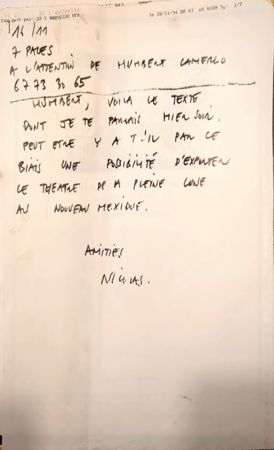 16/11
7 PAGES
A L'ATTENTION DE HUMBERT CAMERLO
67 73 30 65
HUMBERT, VOILA LE TEXTE
DONT JE TE PARLAIS HIER SOIR.
PEUT ETRE Y A T'IL PAR CE
BIAIS UNE POSSIBILITÉ D'EXPORTER
LE THEATRE DE LA PLEINE LUNE
AU NOUVEAU MEXIQUE.
AMITIÉS
NICOLAS.